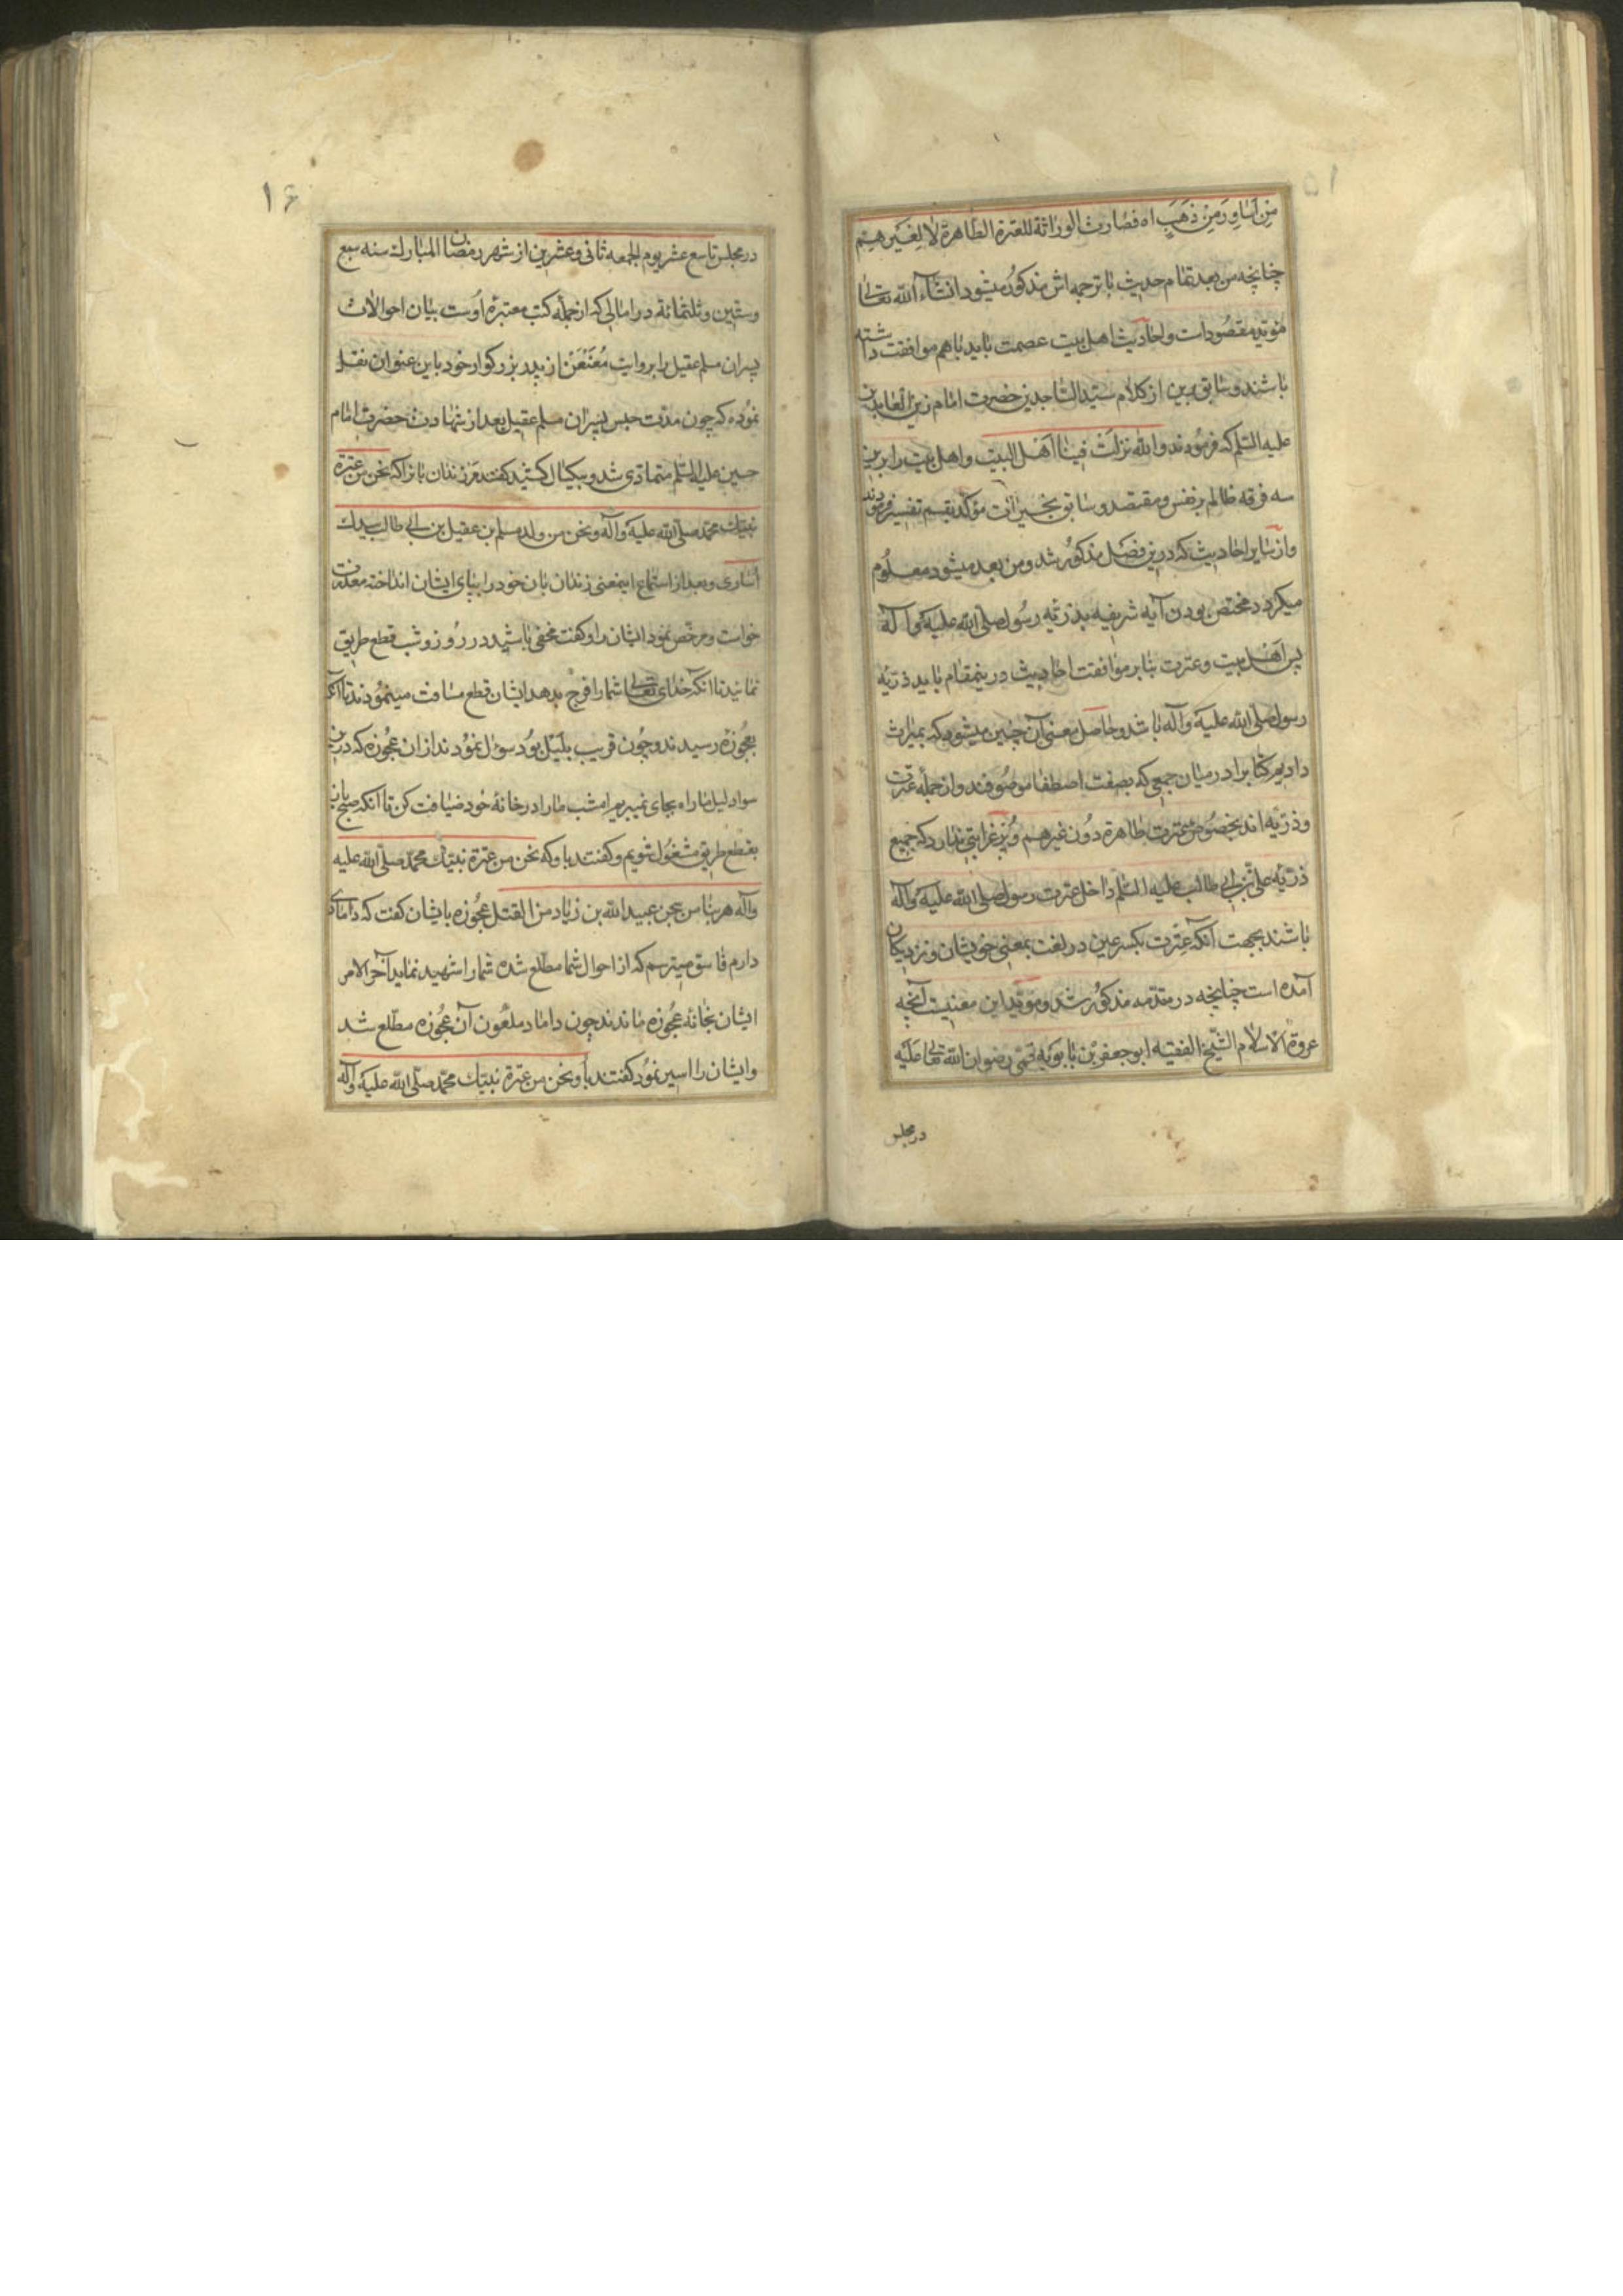 ۵۱
مِن اَساوِرَ مِنْ ذَهَبٍ اه فصارت الوراثة للعترة الطاهرة لا لغيرهم
چنانچه من بعد تمام حدیث با ترجمه اش مذکور میشود انشاء الله تعالی
مؤید مقصود است و احادیث اهل بیت عصمت باید باهم موافقت داشته
باشند و سابق برین از کلام سید الساجدین حضرت امام زین العابدین
علیه السلم که فرموده اند والله نزلت فینا اهل البیت و اهل بیت را برین
سه فرقه ظالم بر نفس و مقتصد و سابق بخیرات مؤکد بقسم تفسیر فرمودند
و از سایر احادیث که درین فصل مذکور شد و من بعد میشود معلوم
میکردد مختص بودن آیه شریفه بذریّه رسول صلی الله علیه و آله
پس اهل بیت و عترت بنابر موافقت احادیث درینمقام باید ذریّه
رسول صلی الله علیه و آله باشد و حاصل معنی آن چنین میشود که بمیراث
دادیم کتابرا در میان جمعی که بصفت اصطفا موصوفند و از جمله عترت
و ذریّه اند بخصوص عترت طاهرة دون غیرهم و نیز غرابتی ندارد که جمیع
ذریّه علی بن ابی طالب علیه السلم داخل عترت رسول صلی الله علیه و آله
باشند بجهت آنکه عِترت بکسر عین در لغت بمعنی خویشان و نزدیکان
آمده است چنانچه در مقدمه مذکور شد و مؤید این معنیست آنچه
عروة الاسلام الشیخ الفقیه ابو جعفر بْن بابویه قمی رضوان الله تعالی علیه
در مجلس
۱۶
در مجلس تاسع عشر یوم الجمعه ثانی و عشرین از شهر رمضان المبارك سنه سبع
وستین وثلثمائة در امالی که از جملهٔ کتب معتبرهٔ اوست بیان احوالات
پسران مسلم عقیل را بروایت مُعَنْعَنْ از پدر بزرکوار خود باین عنوان نقل
نموده که چون مدّت حبس پسران مسلم عقیل بعد از شهادت حضرت امام
حسین علیه السلم متمادی شد و بیکسال کشید کفتند مر زندان بانرا که نحن من عترة
نبیّك محمّد صلی الله علیه وآله ونحن من ولد مسلم بن عقیل بن ابی طالب بیدك
اُساری و بعد از استماع اینمعنی زندان بان خود را بپای ایشان انداخته معذرت
خواست و مرخّص نمود ایشان را و کفت مخفی باشید در روز و شب قطع طریق
نمائید تا آنکه خدای تعالی شما را فرج بدهد ایشان قطع مسافت مینمودند تا آنکه
بعجوزهٔ رسیدند و چون قریب بلیل بود سؤال نمودند از ان عجوزه که درین
سواد لیل ما راه بجای نمیبریم امشب ما را در خانهٔ خود ضیافت کن تا آنکه صبح باز
بقطع طریق مشغول شویم و کفتند باو که نحن من عترة نبیّك محمّد صلی الله علیه
وآله هربنا من سجن عبید الله بن زیاد من القتل عجوزه بایشان کفت که دامادی
دارم فاسق میترسم که از احوال شما مطّلع شده شما را شهید نماید آخر الامر
ایشان بخانهٔ عجوزه ماندند چون داماد ملعون آن عجوزه مطّلع شد
و ایشان را اسیر نمود کفتند باو نحن من عترة نبیّك محمّد صلی الله علیه وآله